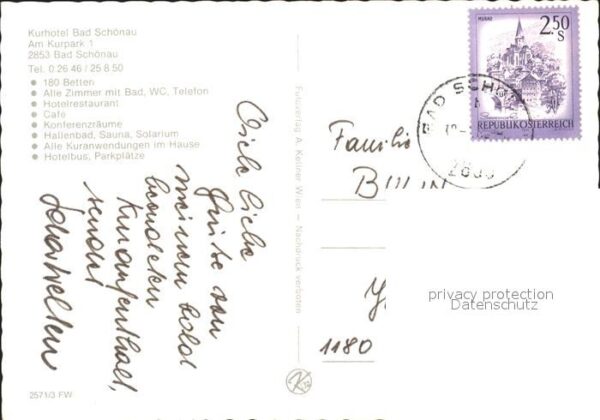 Kurhotel Bad Schönau
Am Kurpark 1
2853 Bad Schönau
Tel. 0 26 46 / 25 8 50
● 180 Betten
● Alle Zimmer mit Bad, WC, Telefon
● Hotelrestaurant
● Cafe
● Konferenzräume
● Hallenbad, Sauna, Solarium
● Alle Kuranwendungen im Hause
● Hotelbus, Parkplätze
Viele liebe
Grüße von
meinem
Kuraufenthalt,
sendet
2571/3 FW
Fotoverlag A. Kellner Wien — Nachdruck verboten
MURAU
2.50
S
REPUBLIK ÖSTERREICH
BAD SCHÖ
Familie
1180
privacy protection
Datenschutz